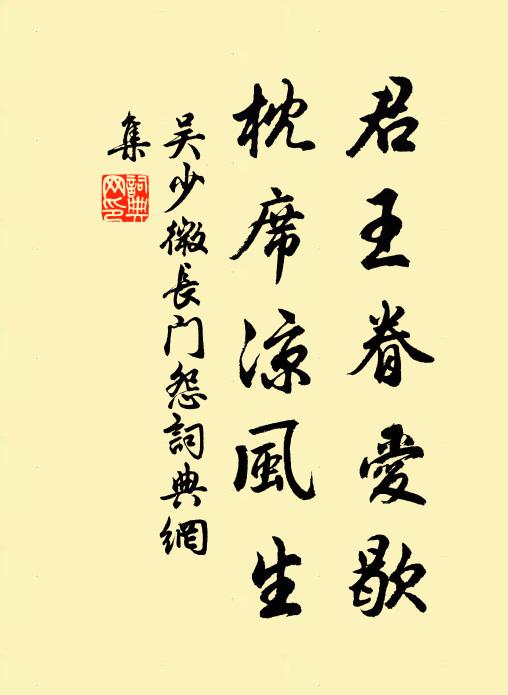 君王眷愛歇
枕席涼風生
吴少微長门怨詞典網
集
詞典
网印